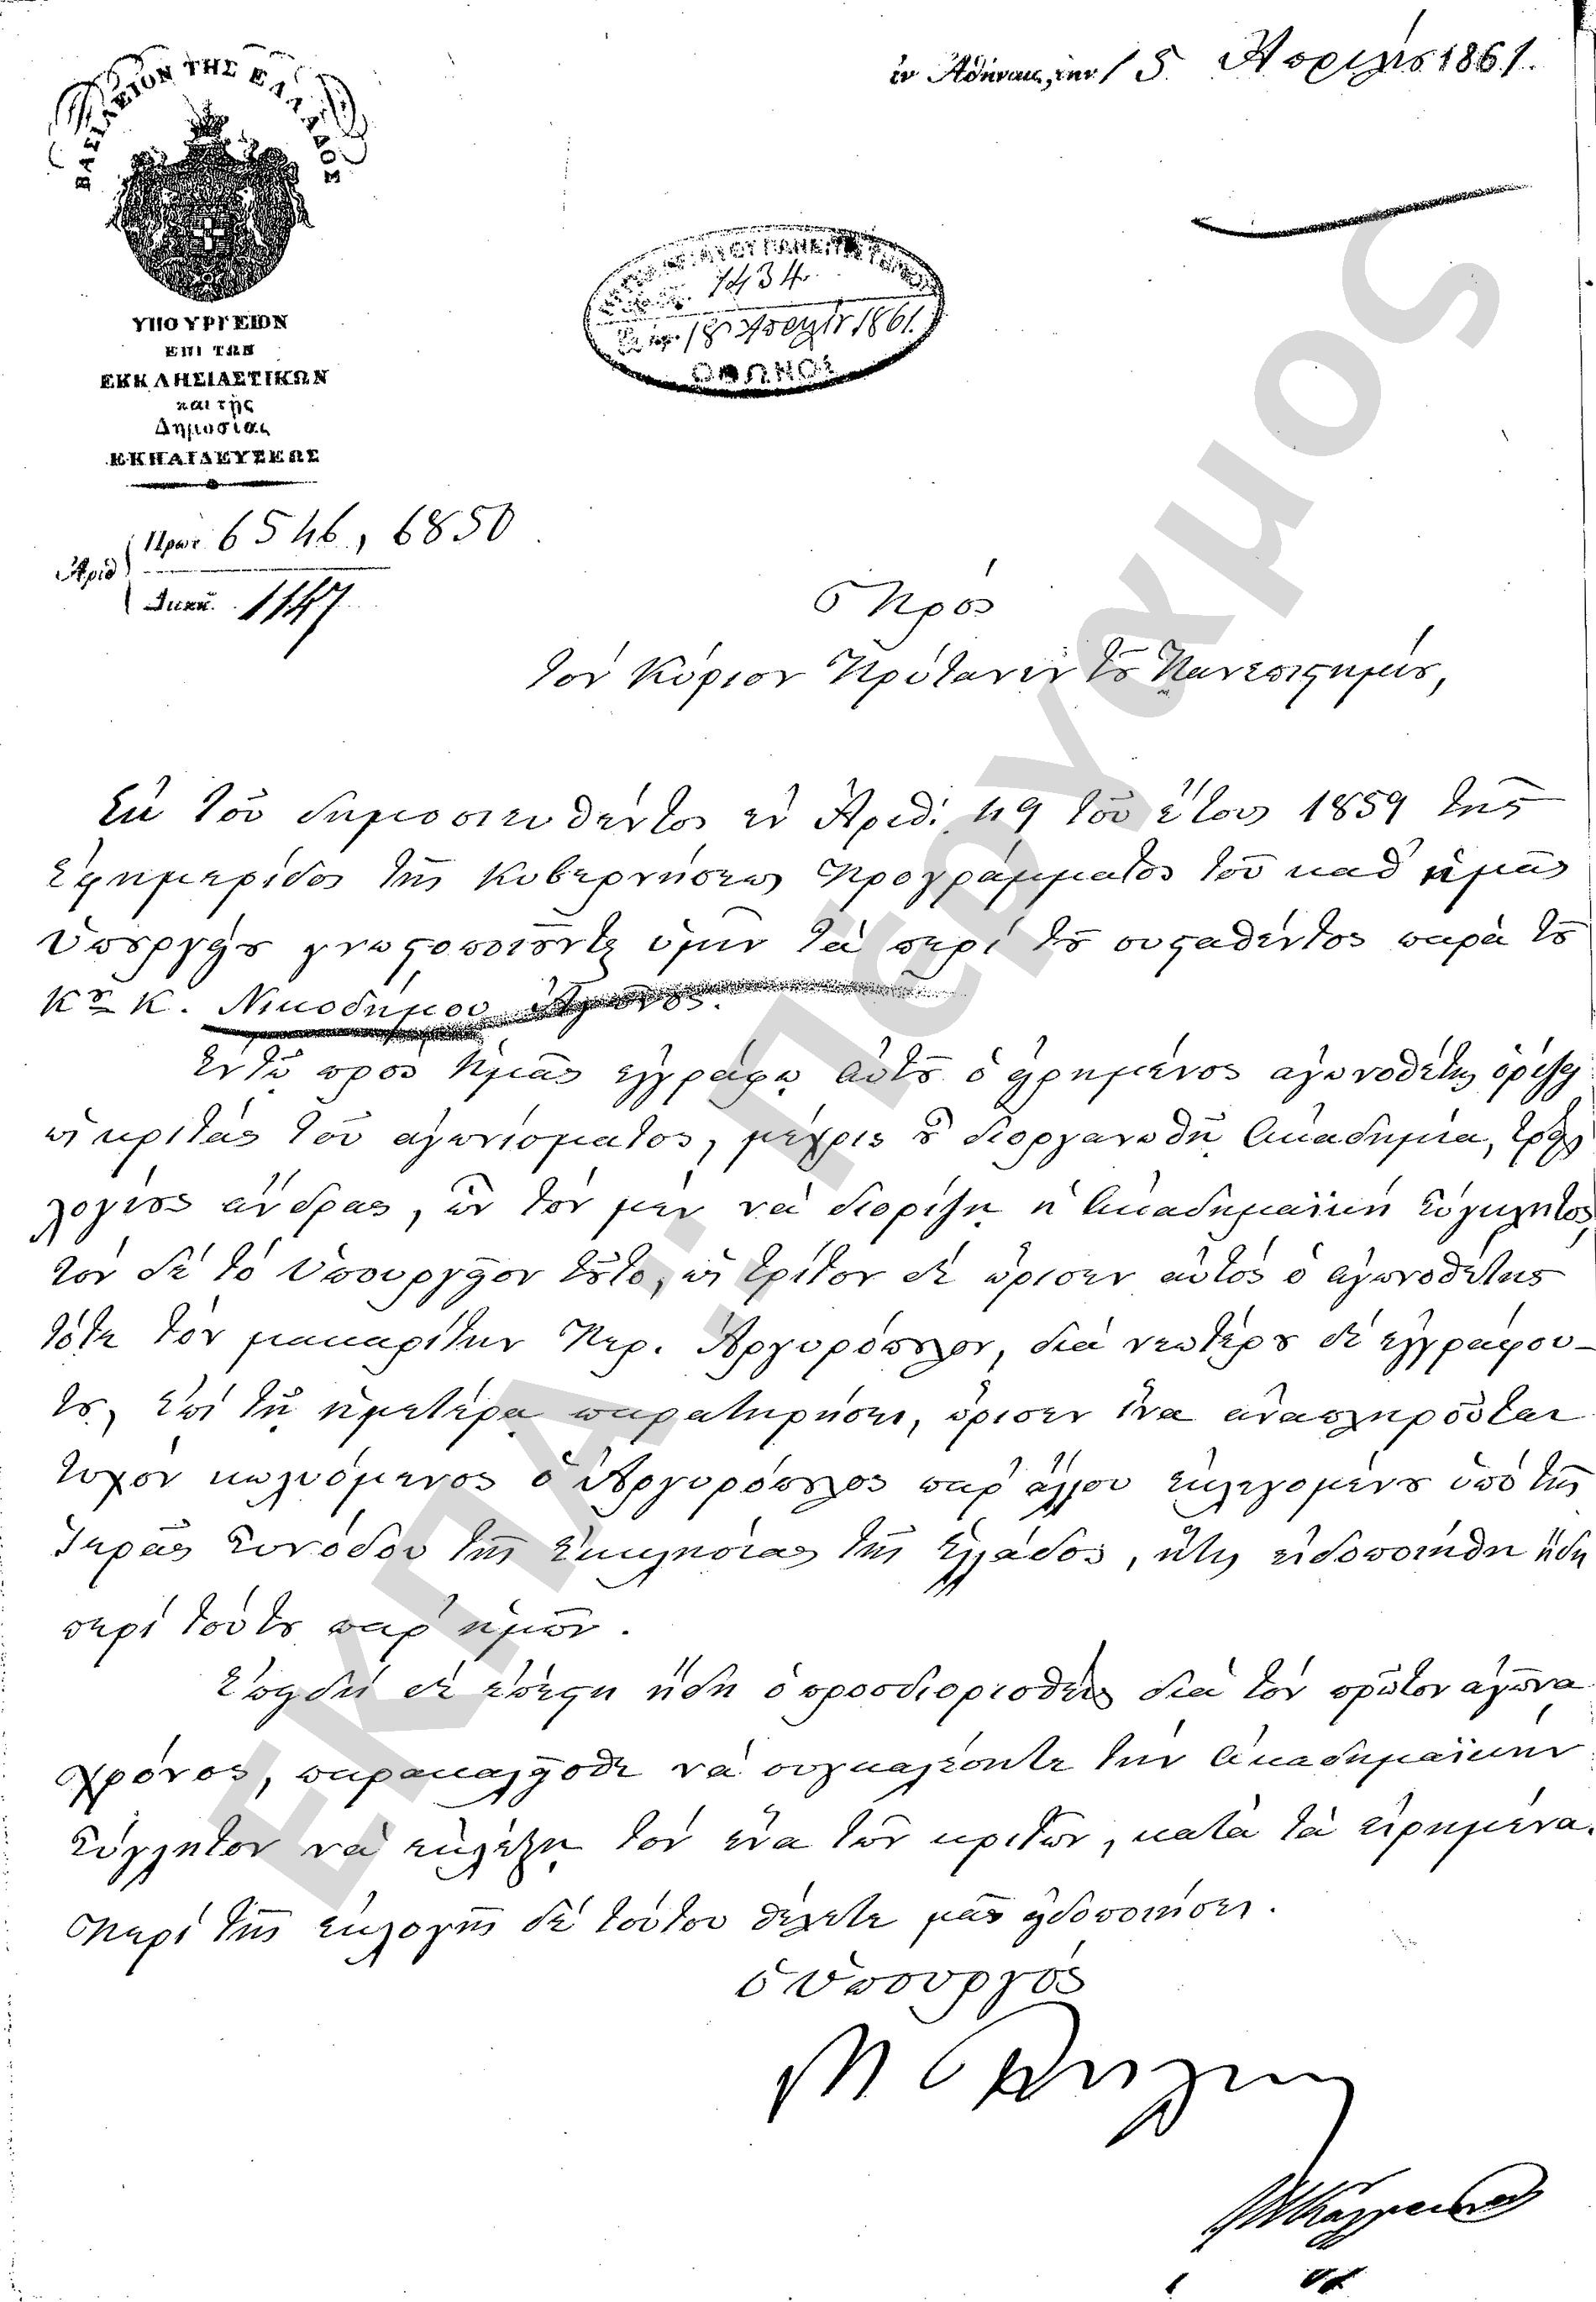 ΒΑΣΙΛΕΙΟΝ ΤΗΣ ΕΛΛΑΔΟΣ
ἐν Ἀθήναις, τὴν 15 Ἀπριλίου 1861.
1434
18 Ἀπριλίου 1861.
ΟΘΩΝΟΣ
ΥΠΟΥΡΓΕΙΟΝ
ΕΠΙ ΤΩΝ
ΕΚΚΛΗΣΙΑΣΤΙΚΩΝ
καὶ τῆς
Δημοσίας
ΕΚΠΑΙΔΕΥΣΕΩΣ
Ἀριθ
Πρωτ. 6546, 6850
Διεκπ. 1147
Πρὸς
τὸν Κύριον Πρύτανιν τοῦ Πανεπιστημίου,
Ἐκ τοῦ δημοσιευθέντος ἐν Ἀριθ. 49 τοῦ ἔτους 1859 τῆς
Ἐφημερίδος τῆς Κυβερνήσεως Προγράμματος τοῦ καθ' ἡμᾶς
Ὑπουργείου γνωστοποιοῦνται ὑμῖν τὰ περὶ τοῦ συσταθέντος παρὰ τοῦ
Κου Κ. Νικοδήμου Ἀγῶνος.
Ἐν τῷ πρὸς ἡμᾶς ἐγγράφῳ αὐτοῦ ὁ εἰρημένος ἀγωνοθέτης ὁρίζει
κριτὰς τοῦ ἀγωνίσματος, μέχρις οὗ διοργανωθῇ Ἀκαδημία, τρεῖς
λογίους ἄνδρας, ὧν τὸν μὲν νὰ διορίζῃ ἡ Ἀκαδημαϊκὴ Σύγκλητος,
τὸν δὲ τὸ Ὑπουργεῖον τοῦτο, καὶ τρίτον δὲ ὥρισεν αὐτὸς ὁ ἀγωνοθέτης
τότε τὸν μακαρίτην Περ. Ἀργυρόπουλον, διὰ νεωτέρου δὲ ἐγγράφου
του, ἐπὶ τῇ ἡμετέρᾳ παρατηρήσει, ὥρισεν ἵνα ἀναπληροῦται
τυχὸν κωλυόμενος ὁ Ἀργυρόπουλος παρ' ἄλλου ἐκλεγομένου ὑπὸ τῆς
Ἱερᾶς Συνόδου τῆς Ἐκκλησίας τῆς Ἑλλάδος, ἥτις εἰδοποιήθη ἤδη
περὶ τούτου παρ' ἡμῶν.
Ἐπειδὴ δὲ ἐπέστη ἤδη ὁ προσδιορισθεὶς διὰ τὸν πρῶτον ἀγῶνα
χρόνος, παρακαλεῖσθε νὰ συγκαλέσητε τὴν Ἀκαδημαϊκὴν
Σύγκλητον νὰ ἐκλέξῃ τὸν ἕνα τῶν κριτῶν, κατὰ τὰ εἰρημένα.
Περὶ τῆς ἐκλογῆς δὲ τούτου θέλετε μᾶς εἰδοποιήσει.
Ὁ Ὑπουργὸς
ΕΚΠΑ - Περγαμος